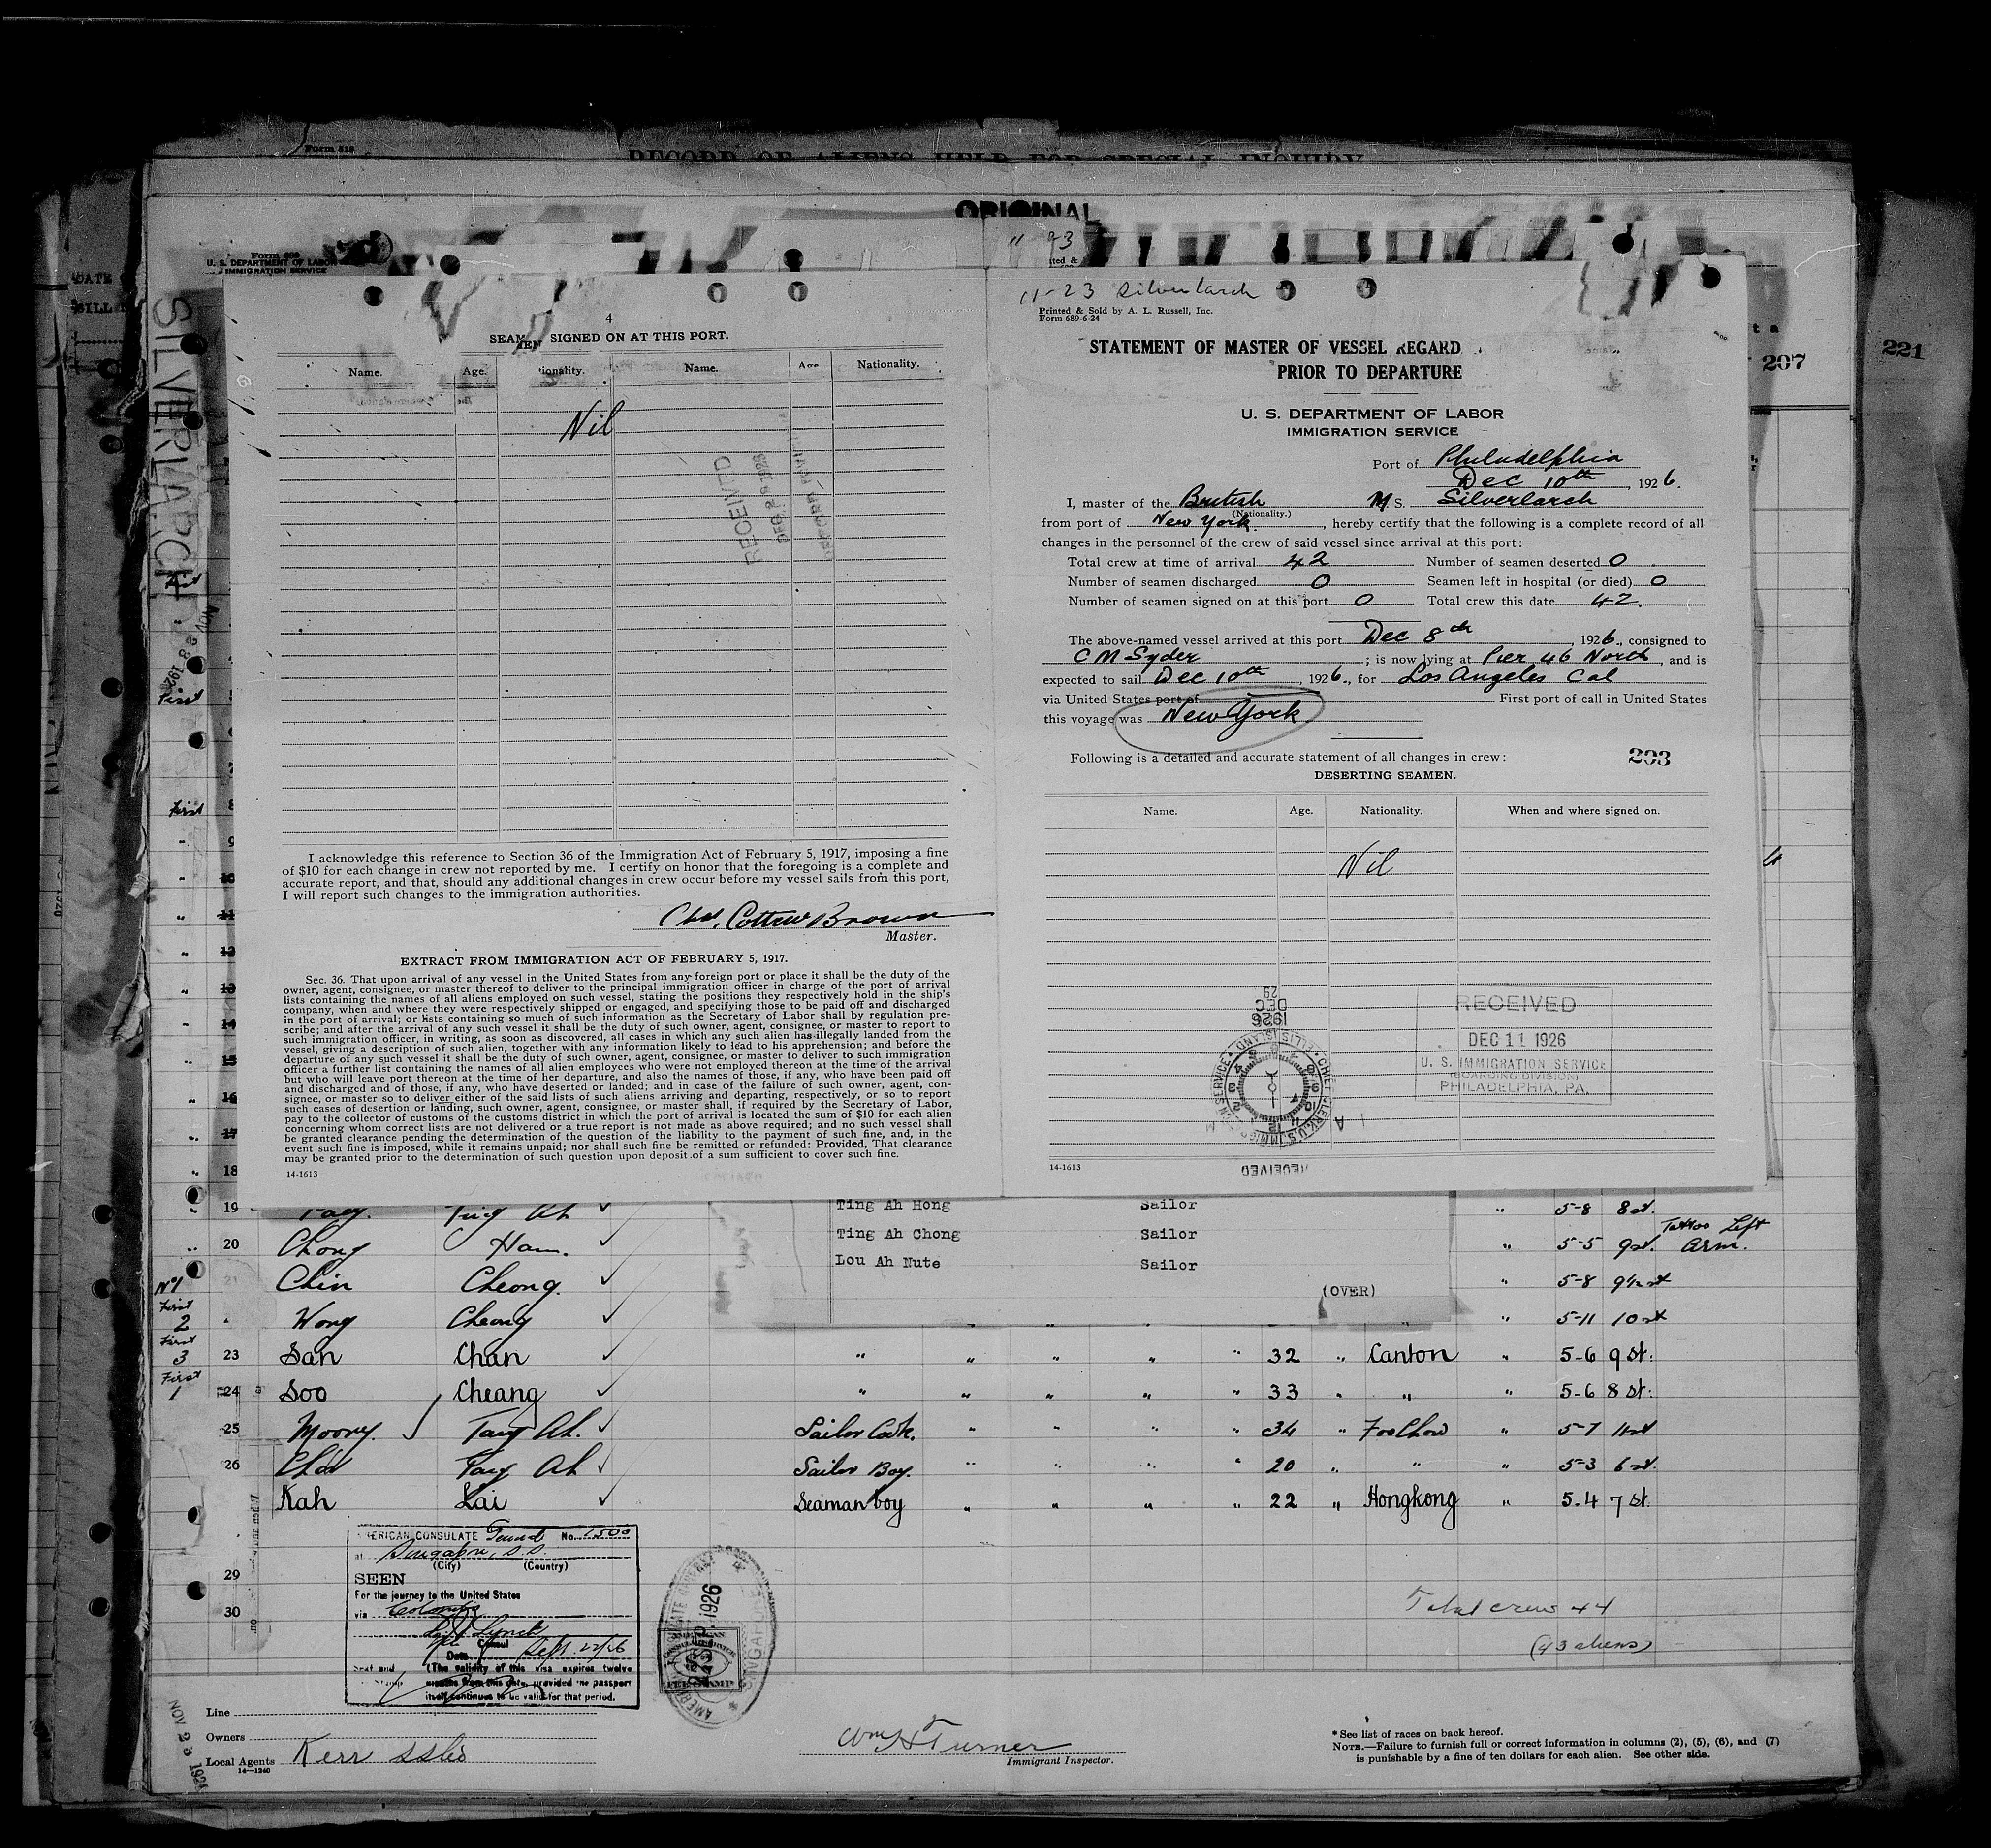 Form 518
RECORD OF ALIENS HELD FOR SPECIAL INQUIRY
ORIGINAL
Form 689
U. S. DEPARTMENT OF LABOR
IMMIGRATION SERVICE
SILVERLARCH
207
221
4
SEAMEN SIGNED ON AT THIS PORT.
Name. Age. Nationality. Name. Age. Nationality.
Nil
RECEIVED
I acknowledge this reference to Section 36 of the Immigration Act of February 5, 1917, imposing a fine
of $10 for each change in crew not reported by me. I certify on honor that the foregoing is a complete and
accurate report, and that, should any additional changes in crew occur before my vessel sails from this port,
I will report such changes to the immigration authorities.
Chas. Cottew Brown
Master.
EXTRACT FROM IMMIGRATION ACT OF FEBRUARY 5, 1917.
Sec. 36. That upon arrival of any vessel in the United States from any foreign port or place it shall be the duty of the
owner, agent, consignee, or master thereof to deliver to the principal immigration officer in charge of the port of arrival
lists containing the names of all aliens employed on such vessel, stating the positions they respectively hold in the ship's
company, when and where they were respectively shipped or engaged, and specifying those to be paid off and discharged
in the port of arrival; or lists containing so much of such information as the Secretary of Labor shall by regulation pre-
scribe; and after the arrival of any such vessel it shall be the duty of such owner, agent, consignee, or master to report to
such immigration officer, in writing, as soon as discovered, all cases in which any such alien has illegally landed from the
vessel, giving a description of such alien, together with any information likely to lead to his apprehension; and before the
departure of any such vessel it shall be the duty of such owner, agent, consignee, or master to deliver to such immigration
officer a further list containing the names of all alien employees who were not employed thereon at the time of the arrival
but who will leave port thereon at the time of her departure, and also the names of those, if any, who have been paid off
and discharged and of those, if any, who have deserted or landed; and in case of the failure of such owner, agent, con-
signee, or master so to deliver either of the said lists of such aliens arriving and departing, respectively, or so to report
such cases of desertion or landing, such owner, agent, consignee, or master shall, if required by the Secretary of Labor,
pay to the collector of customs of the customs district in which the port of arrival is located the sum of $10 for each alien
concerning whom correct lists are not delivered or a true report is not made as above required; and no such vessel shall
be granted clearance pending the determination of the question of the liability to the payment of such fine, and, in the
event such fine is imposed, while it remains unpaid; nor shall such fine be remitted or refunded: Provided, That clearance
may be granted prior to the determination of such question upon deposit of a sum sufficient to cover such fine.
14-1613
11-23 Silverlarch
Printed & Sold by A. L. Russell, Inc.
Form 689-6-24
STATEMENT OF MASTER OF VESSEL REGARD
PRIOR TO DEPARTURE
U. S. DEPARTMENT OF LABOR
IMMIGRATION SERVICE
Port of Philadelphia
Dec 10th, 1926.
I, master of the British M. S. Silverlarch
(Nationality.)
from port of New York, hereby certify that the following is a complete record of all
changes in the personnel of the crew of said vessel since arrival at this port:
Total crew at time of arrival 42 Number of seamen deserted 0
Number of seamen discharged 0 Seamen left in hospital (or died) 0
Number of seamen signed on at this port 0 Total crew this date 42.
The above-named vessel arrived at this port Dec 8th, 1926, consigned to
C M Syder; is now lying at Pier 46 North, and is
expected to sail Dec 10th, 1926., for Los Angeles Cal
via United States port of First port of call in United States
this voyage was New York
Following is a detailed and accurate statement of all changes in crew: 203
DESERTING SEAMEN.
Name. Age. Nationality. When and where signed on.
Nil
1926 DEC 29
CHIEF CLERK, U.S. IMMIGRATION SERVICE ELLIS ISLAND
RECEIVED
RECEIVED
DEC 11 1926
U. S. IMMIGRATION SERVICE
BOARDING DIVISION
PHILADELPHIA, PA.
14-1613
19 Ting Ah 5-8 8 st.
20 Chong Ham. 5-5 9 st. Tattoo Left Arm.
Ting Ah Hong Sailor
Ting Ah Chong Sailor
Lou Ah Nute Sailor
(OVER)
No 1 21 Chin Cheong. " 5-8 9½ st
First 2 Wong Cheong " 5-11 10 st
First 3 23 San Chan " " " " " 32 " Canton " 5-6 9 St:
First 1 24 Soo Cheang " " " " " 33 " " " 5-6 8 St:
25 Moorey. Tang Ah. Sailor Cook. " " " " 34 " FooChow " 5-7 11 st
26 Cha Tang Ah Sailor Boy. " " " " 20 " " " 5-3 6 st.
Kah Lai Seaman boy " " " " 22 " Hongkong " 5.4 7 St.
29
30
AMERICAN CONSULATE General No. 1500
at Singapore, S.S.
(City) (Country)
SEEN
For the journey to the United States
via Colombo
Consul
Date Sept. 22/26
Seal and Stamp (The validity of this visa expires twelve
months from this date, provided the passport
itself continues to be valid for that period.
1926
Total crew 44
(43 aliens)
Line
Owners
Local Agents Kerr SS Co
14-1240
Wm H Turner
Immigrant Inspector.
* See list of races on back hereof.
NOTE.—Failure to furnish full or correct information in columns (2), (5), (6), and (7)
is punishable by a fine of ten dollars for each alien. See other side.